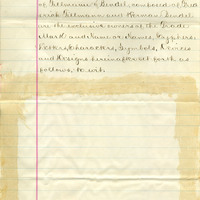 of Tillmann & Bendel, composed of Fred-
erick Tillmann and Herman Bendel,
are the exclusive owners of the Trade
Mark and Name or Names, Cyphers,
Letters, Characters, Symbols, Devices
and Designs hereinafter set forth as
follows, to wit: